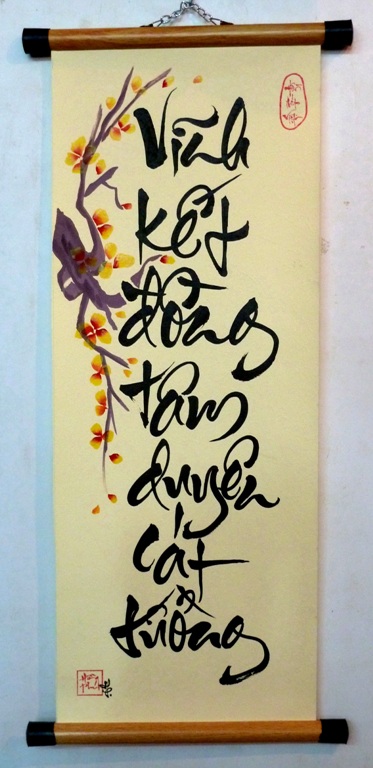 Vĩnh
kết
đồng
tâm
duyên
cát
tường